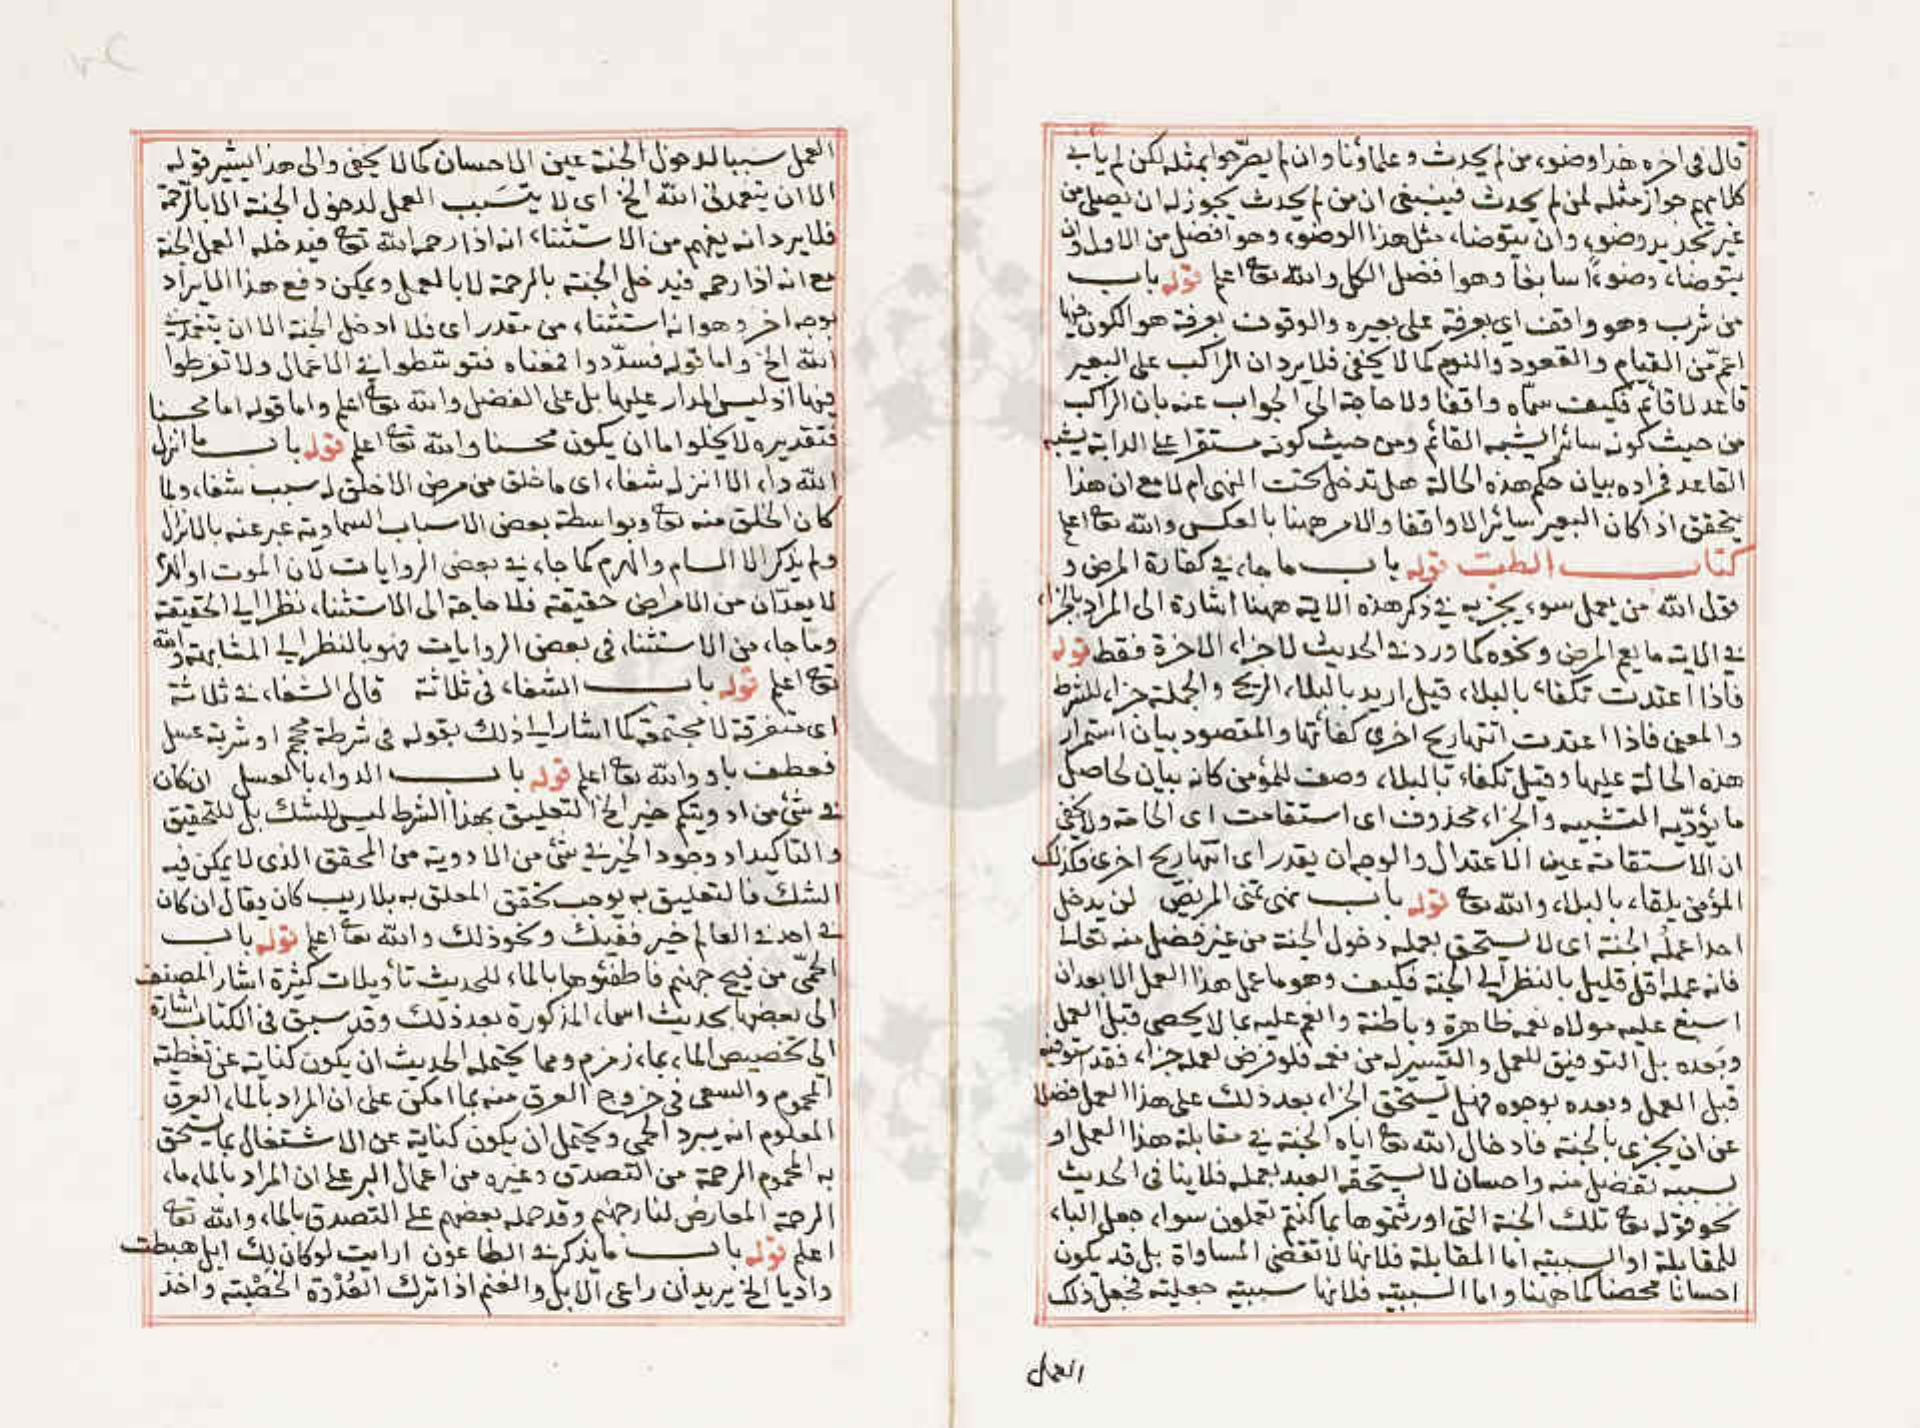 قال في اخره هذا وضوء من لم يحدث وعلماؤنا وان لم يصرحوا بمثله لكن لم يأب
كلامهم جواز مثله لمن لم يحدث فينبغي ان من لم يحدث يجوز له ان يصلي من
غير تجديد وضوء وان يتوضاء مثل هذا الوضوء وهو افضل من الاول وان
يتوضاء وضوءا سابغا وهو افضل الكل والله تعا اعلم قوله باب
من شرب وهو واقف اي بعرفة على بعيره والوقوف بعرفة هو الكون فيها
اعم من القيام والقعود والنوم كما لا يخفى فلا يرد ان الراكب على البعير
قاعد لا قائم فكيف سماه واقفا ولا حاجة الى الجواب عنه بان الراكب
من حيث كونه سائرا يشبه القائم ومن حيث كونه مستقرا على الدابة يشبه
القاعد فمراده بيان حكم هذه الحالة هل تدخل تحت النهى ام لا مع ان هذا
يتحقق اذا كان البعير سائرا لا واقفا والامر ههنا بالعكس والله تعا اعلم
كتاب الطب قوله باب ما جاء في كفارة المرض و
قول الله من يعمل سوء يجز به في ذكر هذه الاية ههنا اشارة الى المراد بالجزاء
في الاية ما يعم المرض ونحوه كما ورد في الحديث لا جزاء الاخرة فقط قوله
فاذا اعتدت تكفاء بالبلاء قيل اريد بالبلاء الريح والجملة جزاء للشرط
والمعنى فاذا اعتدت انتها ريح اخرى كفأتها والمقصود بيان استمرار
هذه الحالة عليها وقيل تكفاء بالبلاء وصف للمؤمن كانه بيان لحاصل
ما يؤديه التشبيه والجزاء محذوف اى استقامت اى الخامة ولا يخفى
ان الاستقامة عين الاعتدال والوجه ان يقدر اى انتها ريح اخرى فكذلك
المؤمن يلقاء بالبلاء والله تعا قوله باب نهى تمنى المريض لن يدخل
احدا عمله الجنة اى لا يستحق بعمله دخول الجنة من غير فضل منه تعالى
فانه عمله اقل قليل بالنظر الى الجنة فكيف وهو ما عمل هذا العمل الا بعد ان
اسبغ عليه مولاه نعمه ظاهرة وباطنة وانعم عليه بما لا يحصى قبل العمل
وبعده بل التوفيق للعمل والتيسير له من نعمه فلو فرض لعمله جزاء فقد استوفيه
قبل العمل وبعده بوجوه فهل يستحق الجزاء بعد ذلك على هذا العمل فضلا
عن ان يجزى بالجنة فادخال الله تعا اياه الجنة في مقابلة هذا العمل او
لسببه تفضل منه واحسان لا يستحقه العبد بعمله فلا ينافى الحديث
نحو قوله تعا تلك الجنة التى اورثتموها بما كنتم تعملون سواء جعل الباء
للمقابلة او السببيه اما المقابلة فلانها لا تقتضى المساواة بل قد يكون
احسانا محضا كما ههنا واما السببيه فلانها سببيه جعليه فجعل ذلك
العمل
العمل سببا لدخول الجنة عين الاحسان كما لا يخفى والى هذا يشير قوله
الا ان يتغمدنى الله الخ اى لا يتسبب العمل لدخول الجنة الا بالرحمة
فلا يرد انه يفهم من الاستثناء انه اذا رحمه الله تعا فيدخله العمل الجنة
مع انه اذا رحمه فيدخل الجنة بالرحمة لا بالعمل ويمكن دفع هذا الايراد
بوجه اخر وهو انه استثناء من مقدر اى فلا ادخل الجنة الا ان يتغمدنى
الله الخ واما قوله فسددوا فمعناه فتوسطوا في الاعمال ولا تفرطوا
فيها اذ ليس المدار عليها بل على الفضل والله تعا اعلم واما قوله اما محسنا
فتقديره لا يخلوا اما ان يكون محسنا والله تعا اعلم قوله باب ما انزل
الله داء الا انزل له شفاء اى ما خلق من مرض الا خلق له سبب شفاء ولما
كان الخلق منه تعا وبواسطة بعض الاسباب السماوية عبر عنه بالانزال
ولم يذكر الا السام والهرم كما جاء في بعض الروايات لان الموت او الهرم
لا يعدان من الامراض حقيقة فلا حاجة الى الاستثناء نظرا الى الحقيقة
وما جاء من الاستثناء في بعض الروايات فهو بالنظر الى المشابهة والله
تعا اعلم قوله باب الشفاء في ثلاثة قال الشفاء في ثلاثة
اى متفرقة لا مجتمعة كما اشار الى ذلك بقوله في شرطة محجم او شربة عسل
فعطف باو والله تعا اعلم قوله باب الدواء بالعسل ان كان
في شئ من ادويتكم خير الخ التعليق بهذا الشرط ليس للشك بل للتحقيق
والتاكيد اذ وجود الخير في شئ من الادوية من المحقق الذى لا يمكن فيه
الشك فالتعليق به يوجب تحقق المعلق به بلا ريب كان يقال ان كان
في احد في العالم خير ففيك ونحو ذلك والله تعا اعلم قوله باب
الحمى من فيح جهنم فاطفئوها بالماء للحديث تأويلات كثيرة اشار المصنف
الى بعضها بحديث اسماء المذكورة بعد ذلك وقد سبق في الكتاب اشارة
الى تخصيص الماء بماء زمزم ومما يحتمله الحديث ان يكون كناية عن تغطية
المحموم والسعى في خروج العرق منه بما امكن على ان المراد بالماء العرق
المعلوم انه يبرد الحمى ويحتمل ان يكون كناية عن الاشتغال بما يستحق
به المحموم الرحمة من التصدق وغيره من اعمال البر على ان المراد بالماء ماء
الرحمة المعارض لنار جهنم وقد حمله بعضهم على التصدق بالماء والله تعا
اعلم قوله باب ما يذكر في الطاعون ارايت لو كان لك ابل هبطت
واديا الخ يريد ان راعى الابل والغنم اذا ترك العدوة الخصبة واخذ